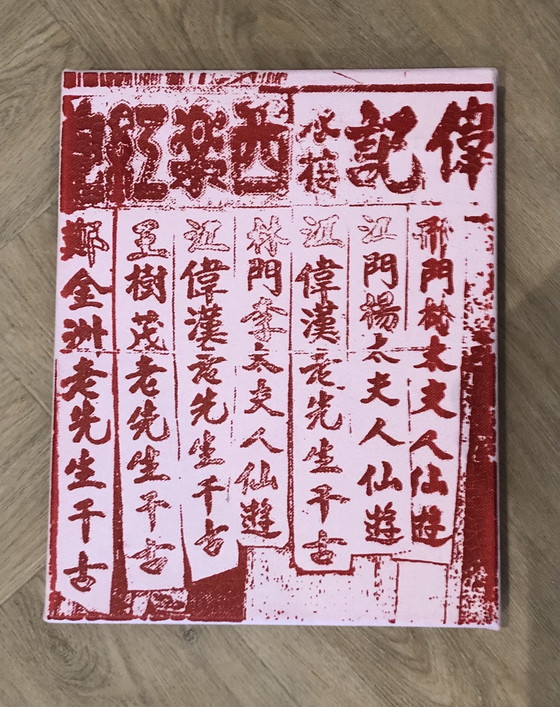 偉記承接西楽紅
邢門太夫人仙遊
江門楊太夫人仙遊
江偉漢老先生千古
林門李太夫人仙遊
江偉漢老先生千古
王樹茂老先生千古
鄭金洲老先生千古